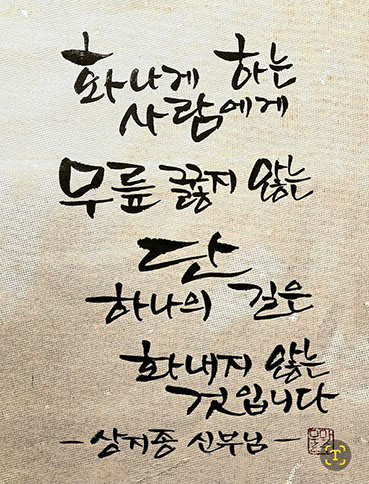 화나게 하는
사람에게
무릎 꿇지 않는
단
하나의 길은
화내지 않는
것입니다
- 상지종 신부님 -